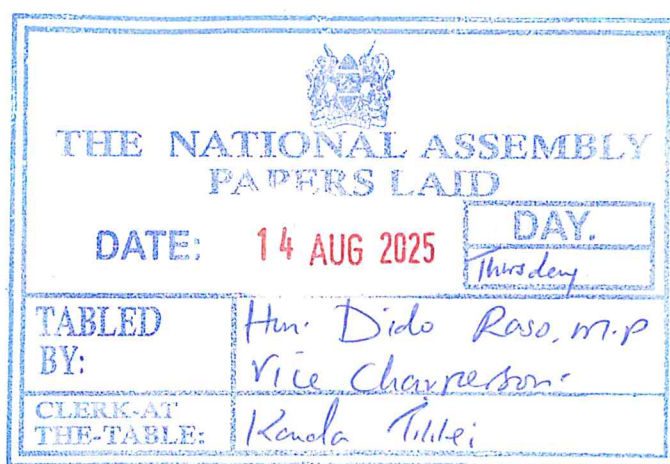 THE NATIONAL ASSEMBLY
PAPERS LAID
DATE: 14 AUG 2025
DAY.
Thursday
TABLED BY: Hon. Dido Raso, M.P
Vice Chairperson.
CLERK-AT THE-TABLE: